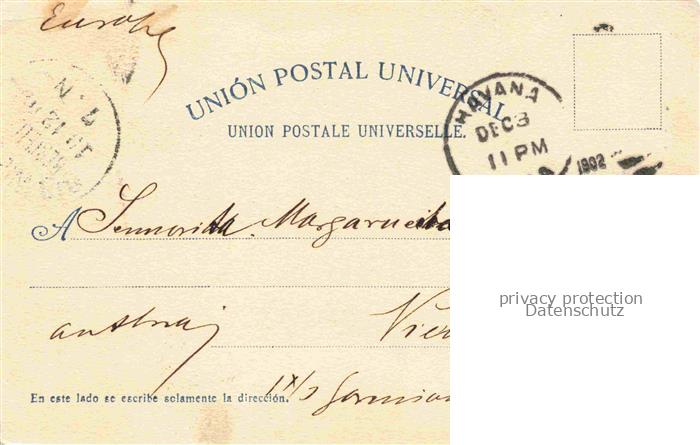 Europe
UNIÓN POSTAL UNIVERSAL
UNION POSTALE UNIVERSELLE.
HAVANA
DEC 3
11 PM
1902
A Sennorita Margarucita
privacy protection
Datenschutz
Austria
IX/3
En este lado se escribe solamente la dirección.